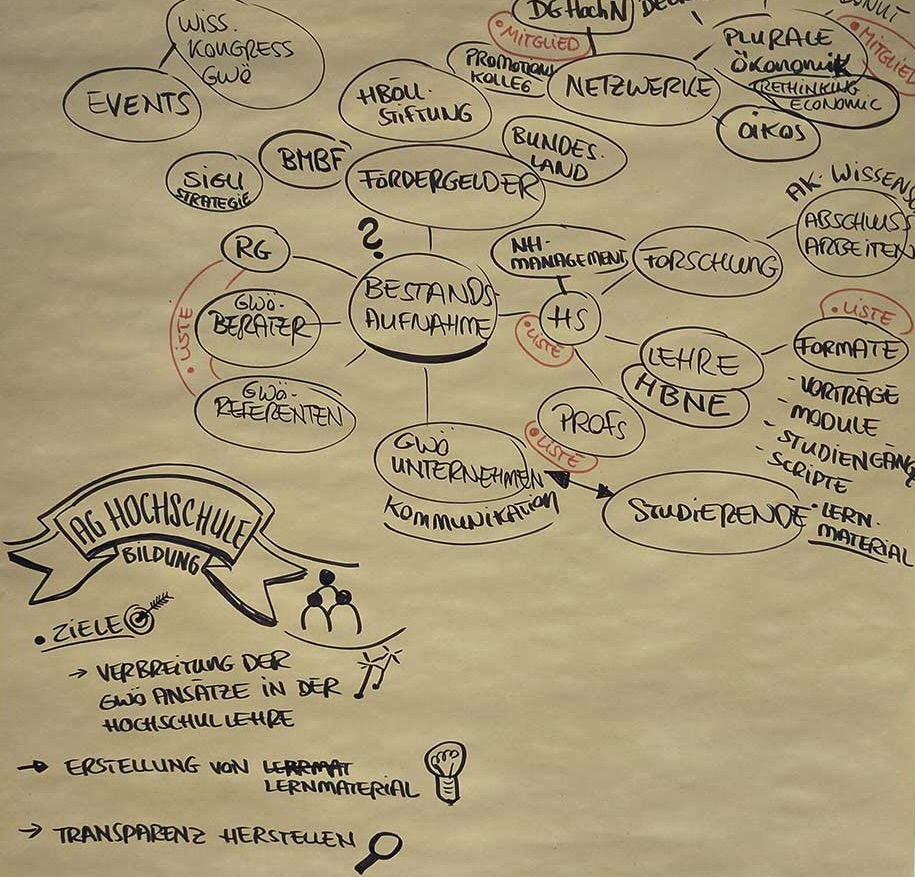 DG HochN
WISS.
KONGRESS
GWÖ
EVENTS
• MITGLIED
PROMOTIONS
KOLLEG
NETZWERKE
PLURALE
ÖKONOMIK
RETHINKING
ECONOMIC
• MITGLIED
OIKOS
HBÖLL
STIFTUNG
BUNDES.
LAND
BMBF
FÖRDERGELDER
SIGU
STRATEGIE
AK. WISSENS
ABSCHLUSS
ARBEITEN
?
RG
NH-
MANAGEMENT
FORSCHUNG
BESTANDS-
AUFNAHME
HS
• LISTE
GWÖ-
BERATER
• LISTE
• LISTE
LEHRE
HBNE
FORMATE
- VORTRÄGE
- MODULE
- STUDIENGÄNG
- SCRIPTE
- LERN.
MATERIAL
GWÖ-
REFERENTEN
PROFS
• LISTE
GWÖ
UNTERNEHMEN
KOMMUNIKATION
STUDIERENDE
AG HOCHSCHULE
BILDUNG
• ZIELE
→ VERBREITUNG DER
GWÖ ANSÄTZE IN DER
HOCHSCHULLEHRE
→ ERSTELLUNG VON LERRMAT
LERNMATERIAL
→ TRANSPARENZ HERSTELLEN